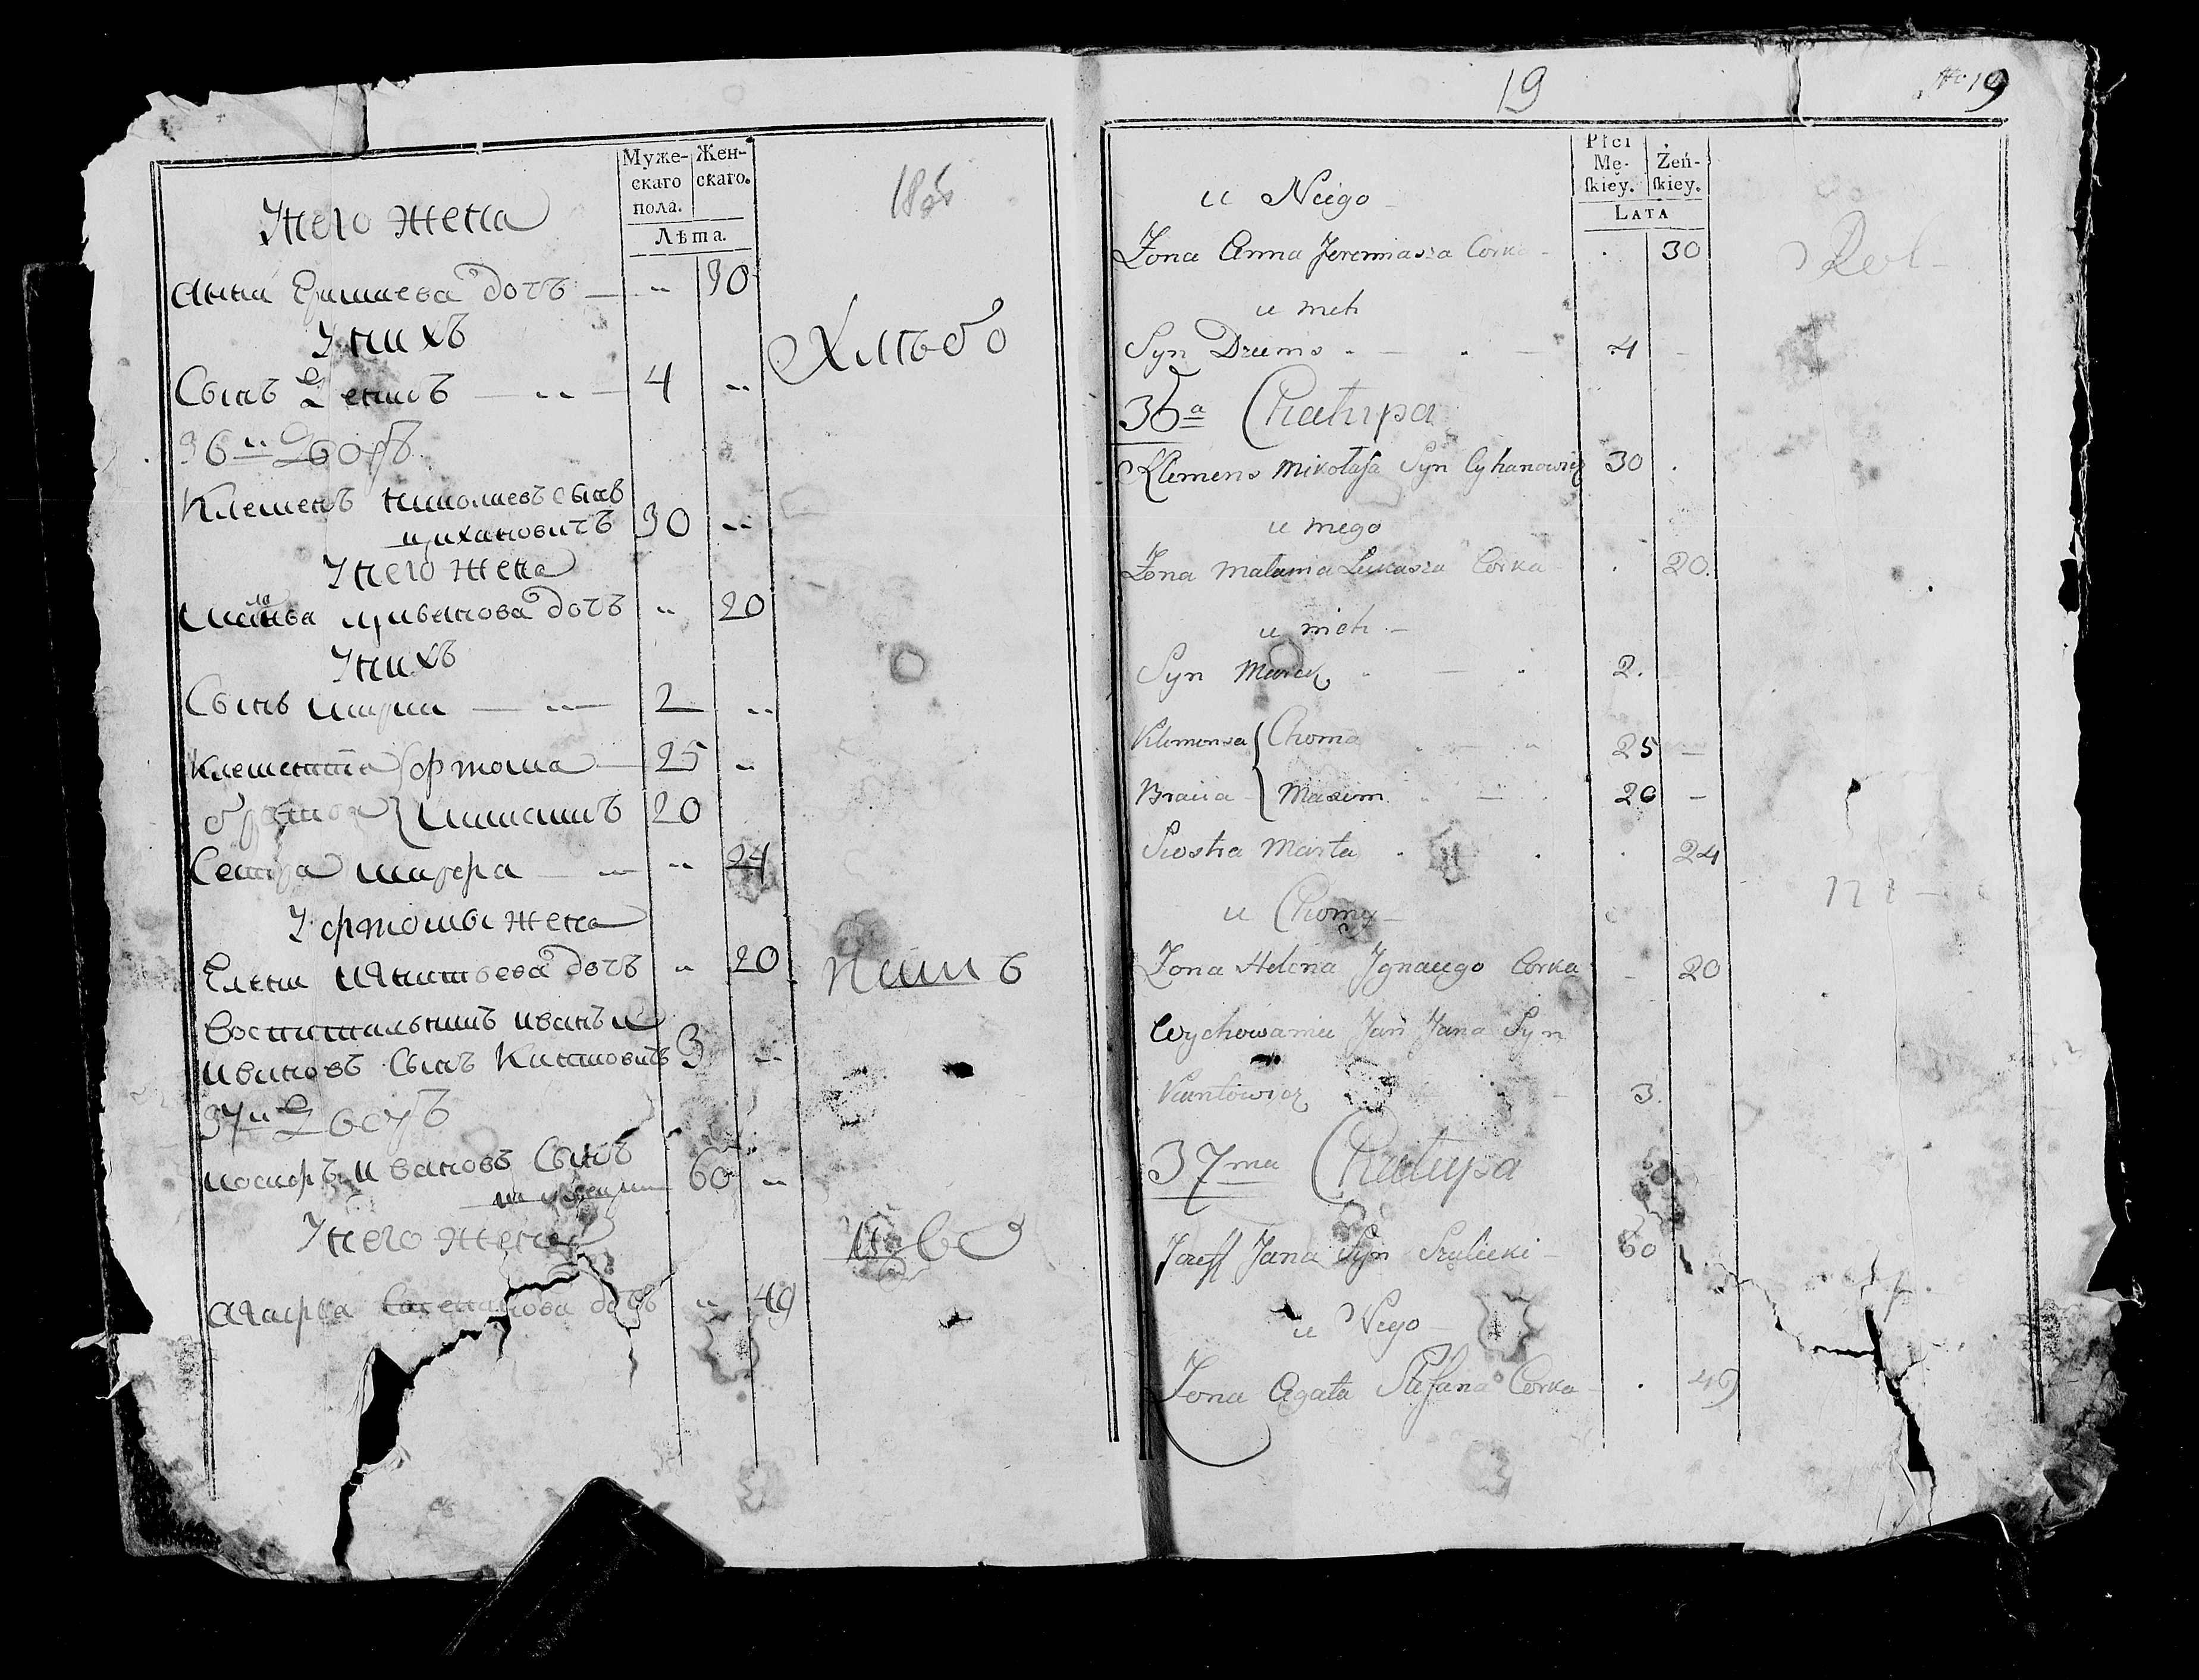 Муже-
скаго
пола.
Жен-
скаго.
Лѣта.
У него жена
Анна Еримаева дочъ — „ 30
У нихъ
Сынъ Денисъ — „ — 4 „
36й Дворъ
Клеменъ Николаевъ сынъ
Цихановичъ 30 „
У него жена
дочъ „ 20
У нихъ
Сынъ Марки — „ — 2 „
Клементiа { Фтома — 25 „
брати { Максимъ 20
Сестра Марфа — „ „ 24
У Фтомы жена
Елена Игнатьева дочъ „ 20
Воспитальникъ Иванъ
Ивановъ Сынъ 3 „
37й Дворъ
Иосифъ Ивановъ Сынъ
60 „
У него жена
Агафiа дочъ „ 49
Хлѣбо
пашъ
19
№ 19
Płci
Mę-
skiey.
Żeń-
skiey.
Lata
u Niego
Zona Anna Jeremiasza Corka - . 30
u nich
Syn Dzenis . — . — 4 -
36a Chałupa
Klemens Mikołaja Syn Cyhanowicz 30 .
u niego
Zona Malania Łukasza Corka . 20.
u nich —
Syn Marek . — . 2.
Klemensa { Choma 25 —
Bracia { Maxim . — . 20 —
Siostra Marta . . . 24
u Chomy —
Zona Helena Ignacego Corka - 20
Wychowaniec Jan Jana Syn
3.
37ma Chałupa
Jozeff Jana Syn Szulicki — 60
u Niego —
Zona Agata Stefana Corka - . 49